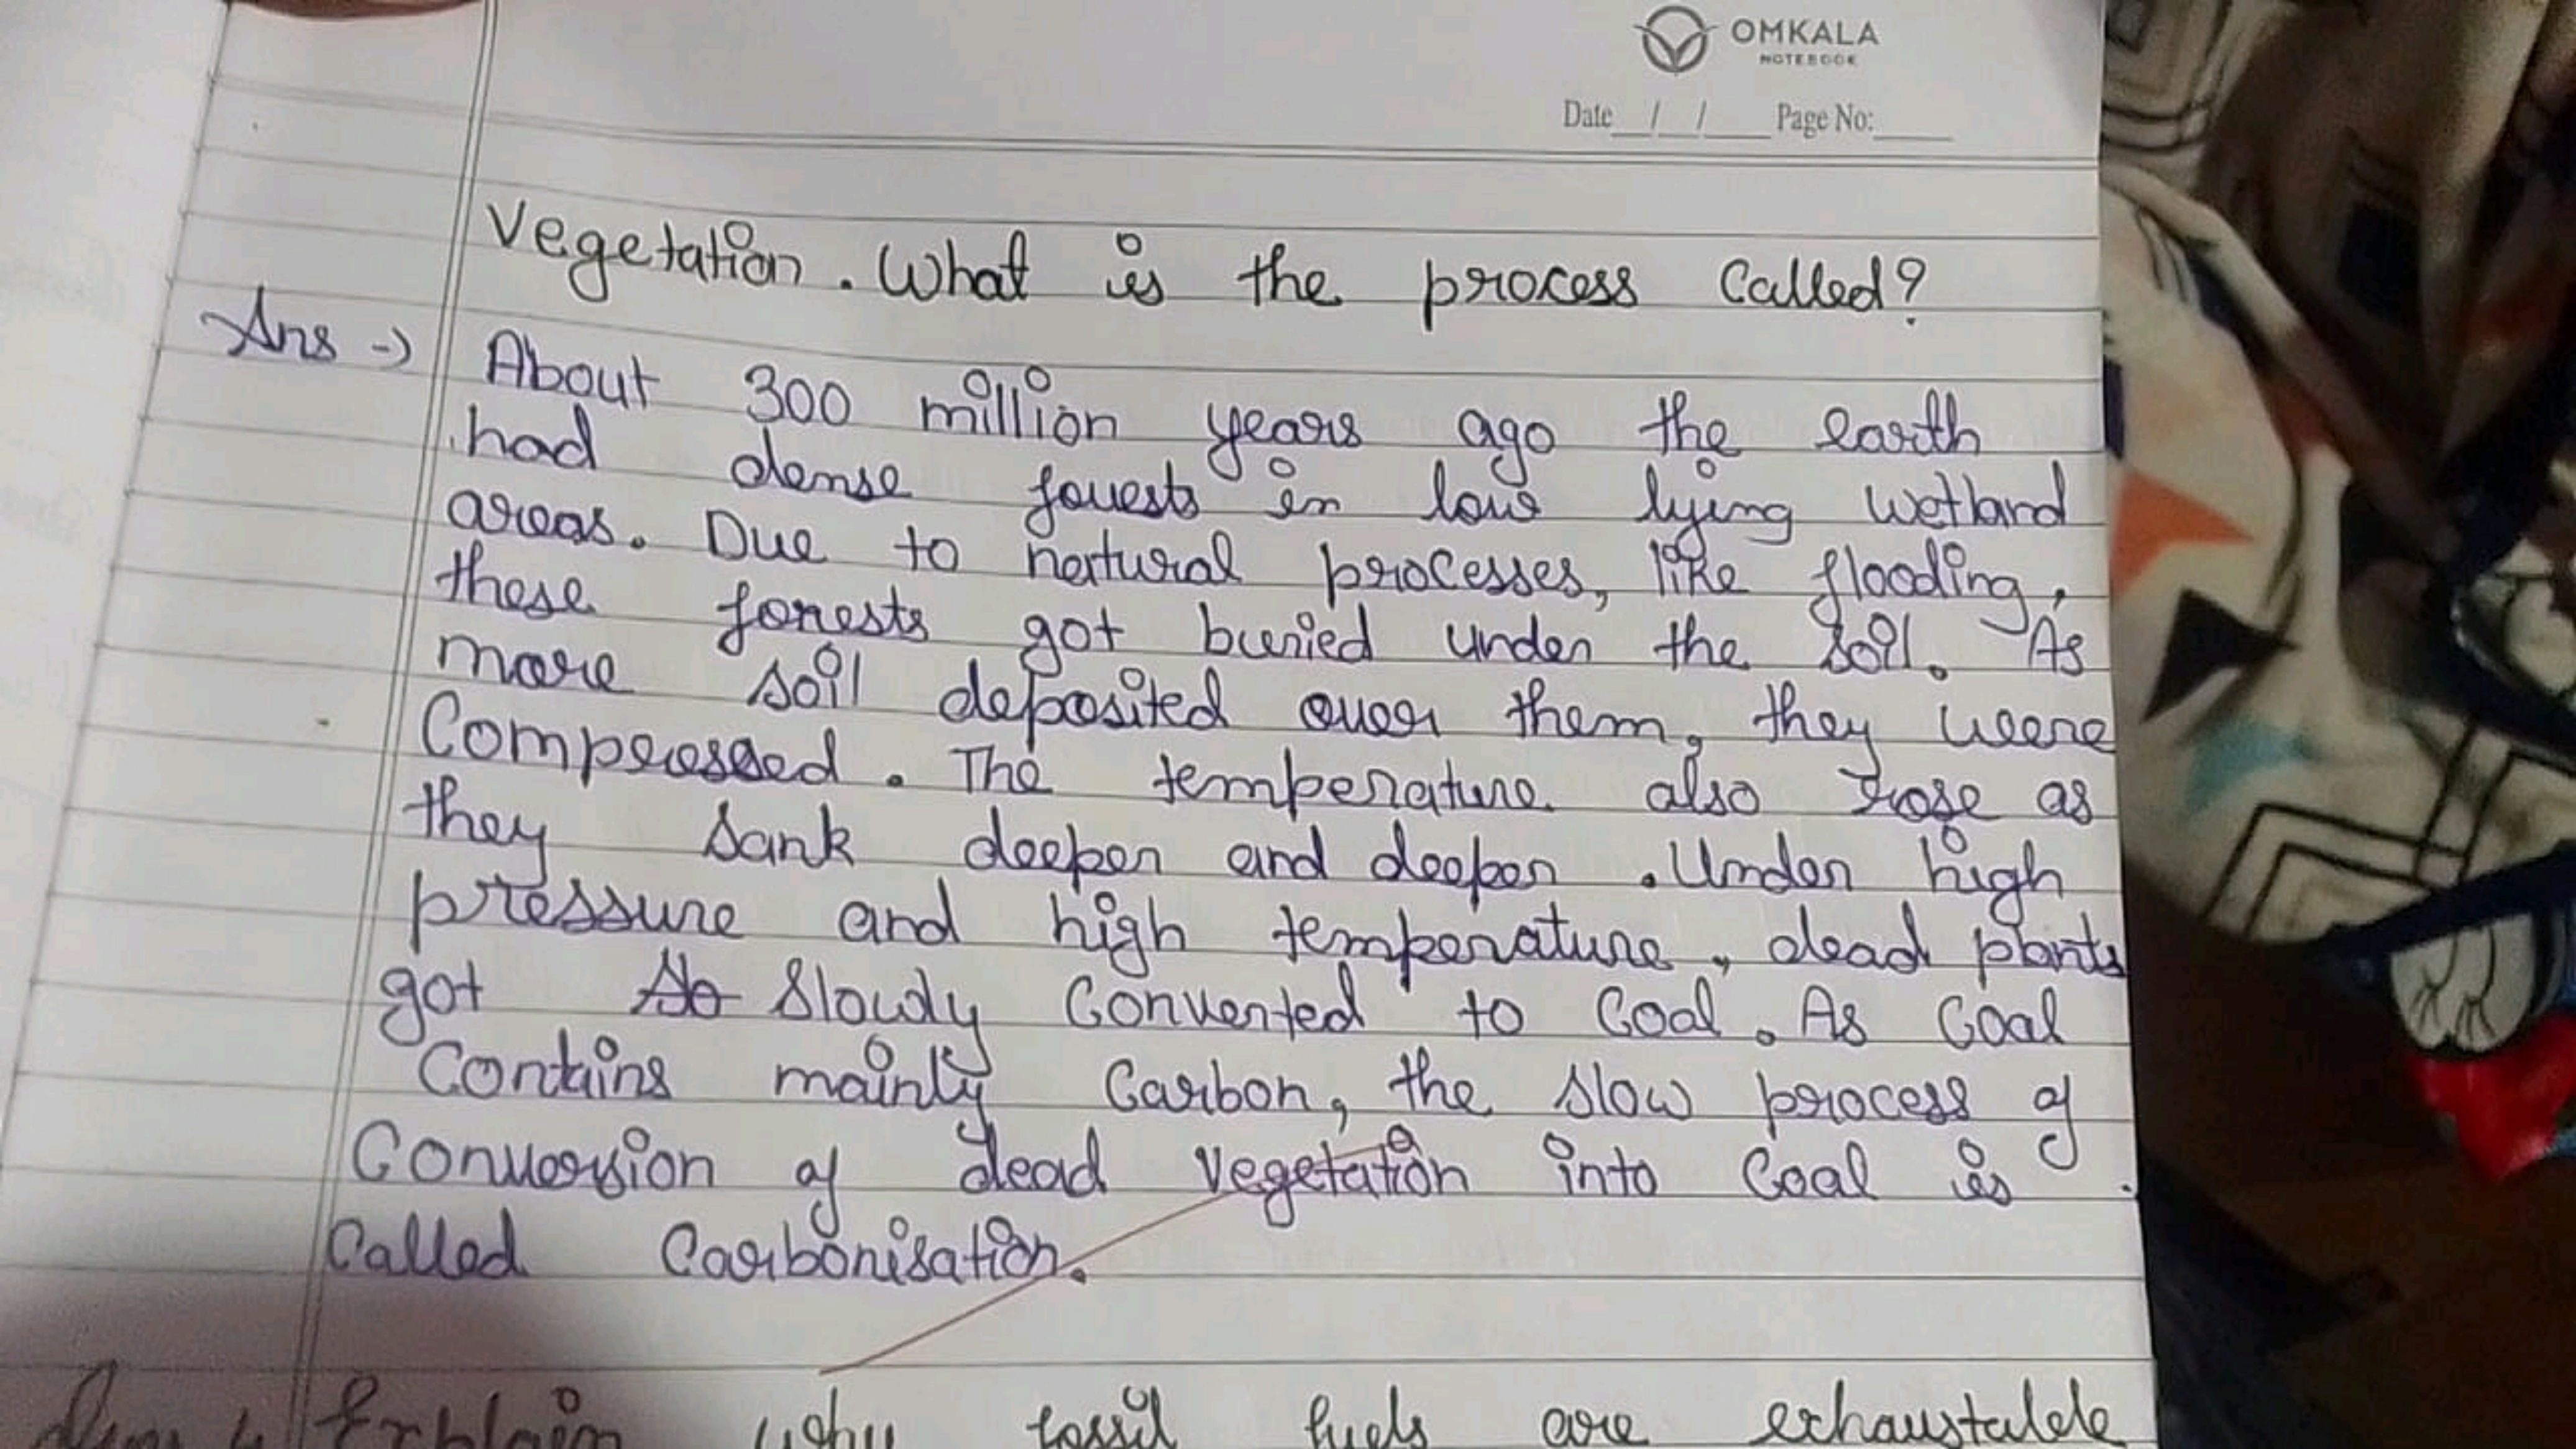 OMKALA
NOTEBOOK
Date __/__/____ Page No:_____
Vegetation. What is the process Called?
Ans -> About 300 million years ago the earth
had dense forests in low lying wetland
areas. Due to natural processes, like flooding,
these forests got buried under the soil. As
more soil deposited over them, they were
Compressed. The temperature also rose as
they sank deeper and deeper. Under high
pressure and high temperature, dead plants
got So Slowly Converted to Coal. As Coal
Contains mainly Carbon, the slow process of
Conversion of dead vegetation into Coal is
Called Carbonisation.
Explain why fossil fuels are exhaustable